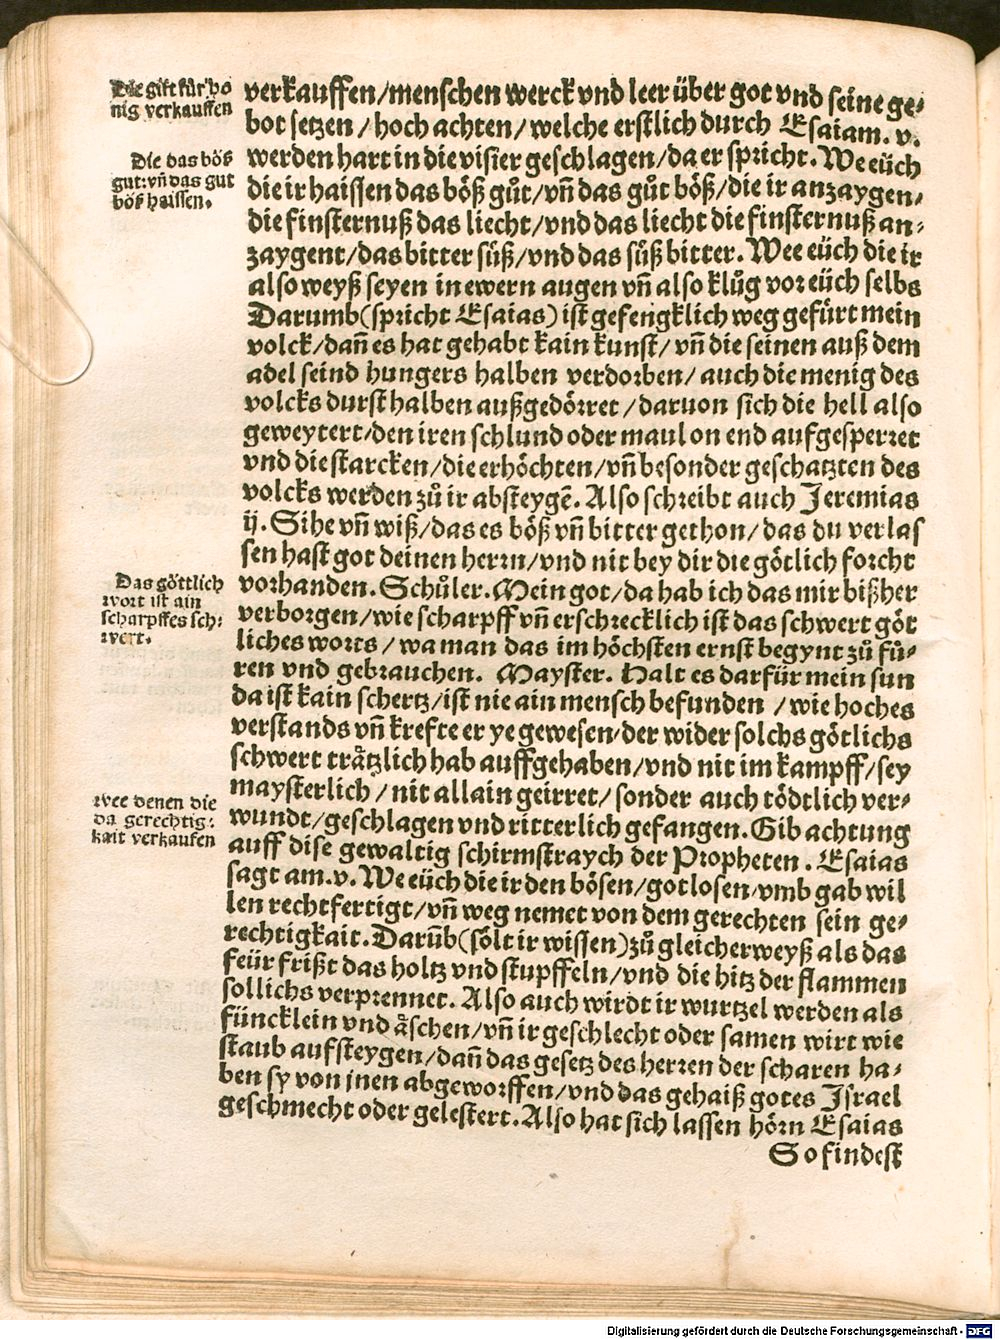 Die gift für ho
nig verkauffen
Die das bös
gut: vñ das gut
bös haissen.
verkauffen/menschen werck vnd leer über got vnd seine ge-
bot setzen/hoch achten/welche erstlich durch Esaiam. v.
werden hart in die visier geschlagen/da er spricht. Wee eüch
die ir haissen das böß gůt/vñ das gůt böß/die ir anzaygen,
die finsternuß das liecht/vnd das liecht die finsternuß an-
zaygent/das bitter süß/vnd das süß bitter. Wee eüch die ir
also weyß seyen in ewern augen vñ also klůg vor eüch selbs
Darumb(spricht Esaias) ist gefengklich weg gefürt mein
volck/dañ es hat gehabt kain kunst/vñ die seinen auß dem
adel seind hungers halben verdorben/auch die menig des
volcks durst halben außgedörret/daruon sich die hell also
geweytert/den iren schlund oder maul on end aufgesperret
vnd die starcken/die erhöchten/vñ besonder geschatzten des
volcks werden zů ir absteygẽ. Also schreibt auch Jeremias
ij. Sihe vñ wiß/das es böß vñ bitter gethon/das du verlas
sen hast got deinen herrn/vnd nit bey dir die götlich forcht
vorhanden. Schůler. Mein got/da hab ich das mir bißher
verborgen/wie scharpff vñ erschrecklich ist das schwert göt
liches worts/wa man das im höchsten ernst begynt zů fů-
ren vnd gebrauchen. Mayster. Halt es darfür mein sun
da ist kain schertz/ist nie ain mensch befunden/wie hoches
verstands vñ krefte er ye gewesen/der wider solchs götlichs
schwert trätzlich hab auffgehaben/vnd nit im kampff/sey
maysterlich/nit allain geirret/sonder auch tödtlich ver-
wundt/geschlagen vnd ritterlich gefangen. Gib achtung
auff dise gewaltig schirmstraych der Propheten. Esaias
sagt am. v. Wee eüch die ir den bösen/gotlosen/vmb gab wil
len rechtfertigt/vñ weg nemet von dem gerechten sein ge-
rechtigkait. Darũb(sölt ir wissen)zů gleicher weyß als das
feür frißt das holtz vnd stupffeln/vnd die hitz der flammen
sollichs verprennet. Also auch wirdt ir wurtzel werden als
füncklein vnd äschen/vñ ir geschlecht oder samen wirt wie
staub aufsteygen/dañ das gesetz des herren der scharen ha-
ben sy von jnen abgeworffen/vnd das gehaiß gotes Israel
geschmecht oder gelestert. Also hat sich lassen hörn Esaias
So findest
Das göttlich
wort ist ain
scharpffes sch-
wert.
wee denen die
da gerechtig-
kait verkaufen
Digitalisierung gefördert durch die Deutsche Forschungsgemeinschaft - DFG